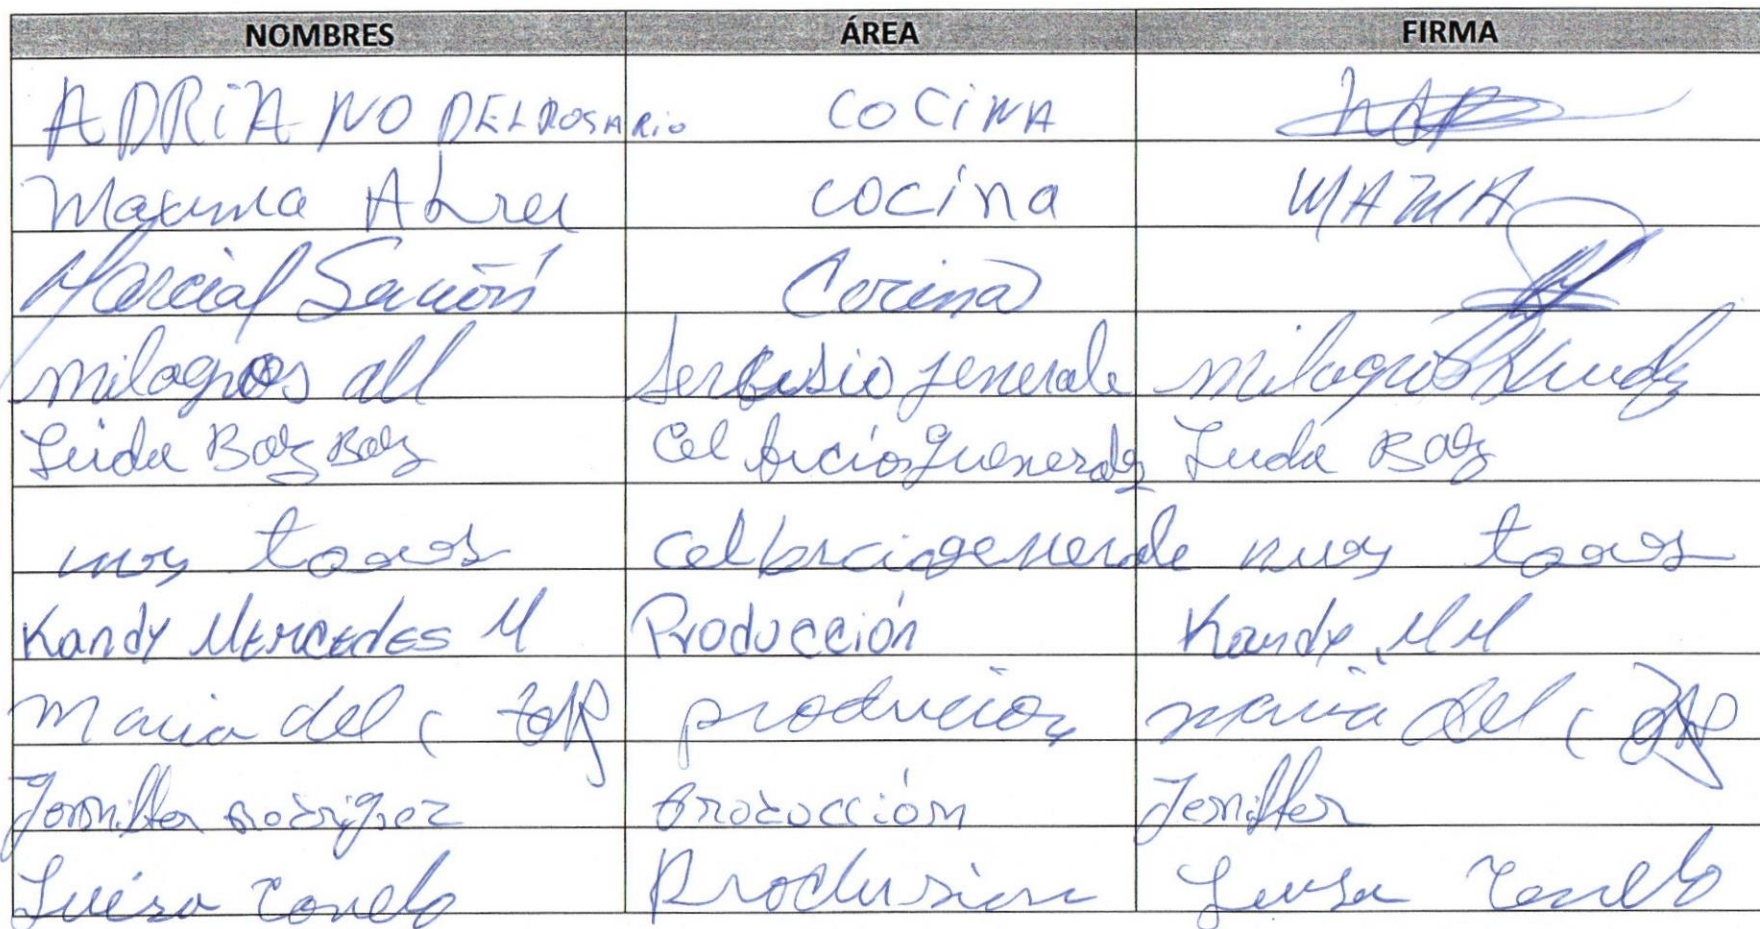 NOMBRES ÁREA FIRMA
ADRiANO DELROSARio COCiNA
Maxima Abreu cocina MAMA
Marcial Cocina
milagros all serbisio jenerale milagros
Leida Baez Baez Cel bicios guenerales Leida Baez
celbicio generale
Kandy MERCEdES M Producción Kandy MM
Maria del C producion maria del C
Jenniffer Rodriguez Producción Jeniffer
Luisa Produsion Luisa